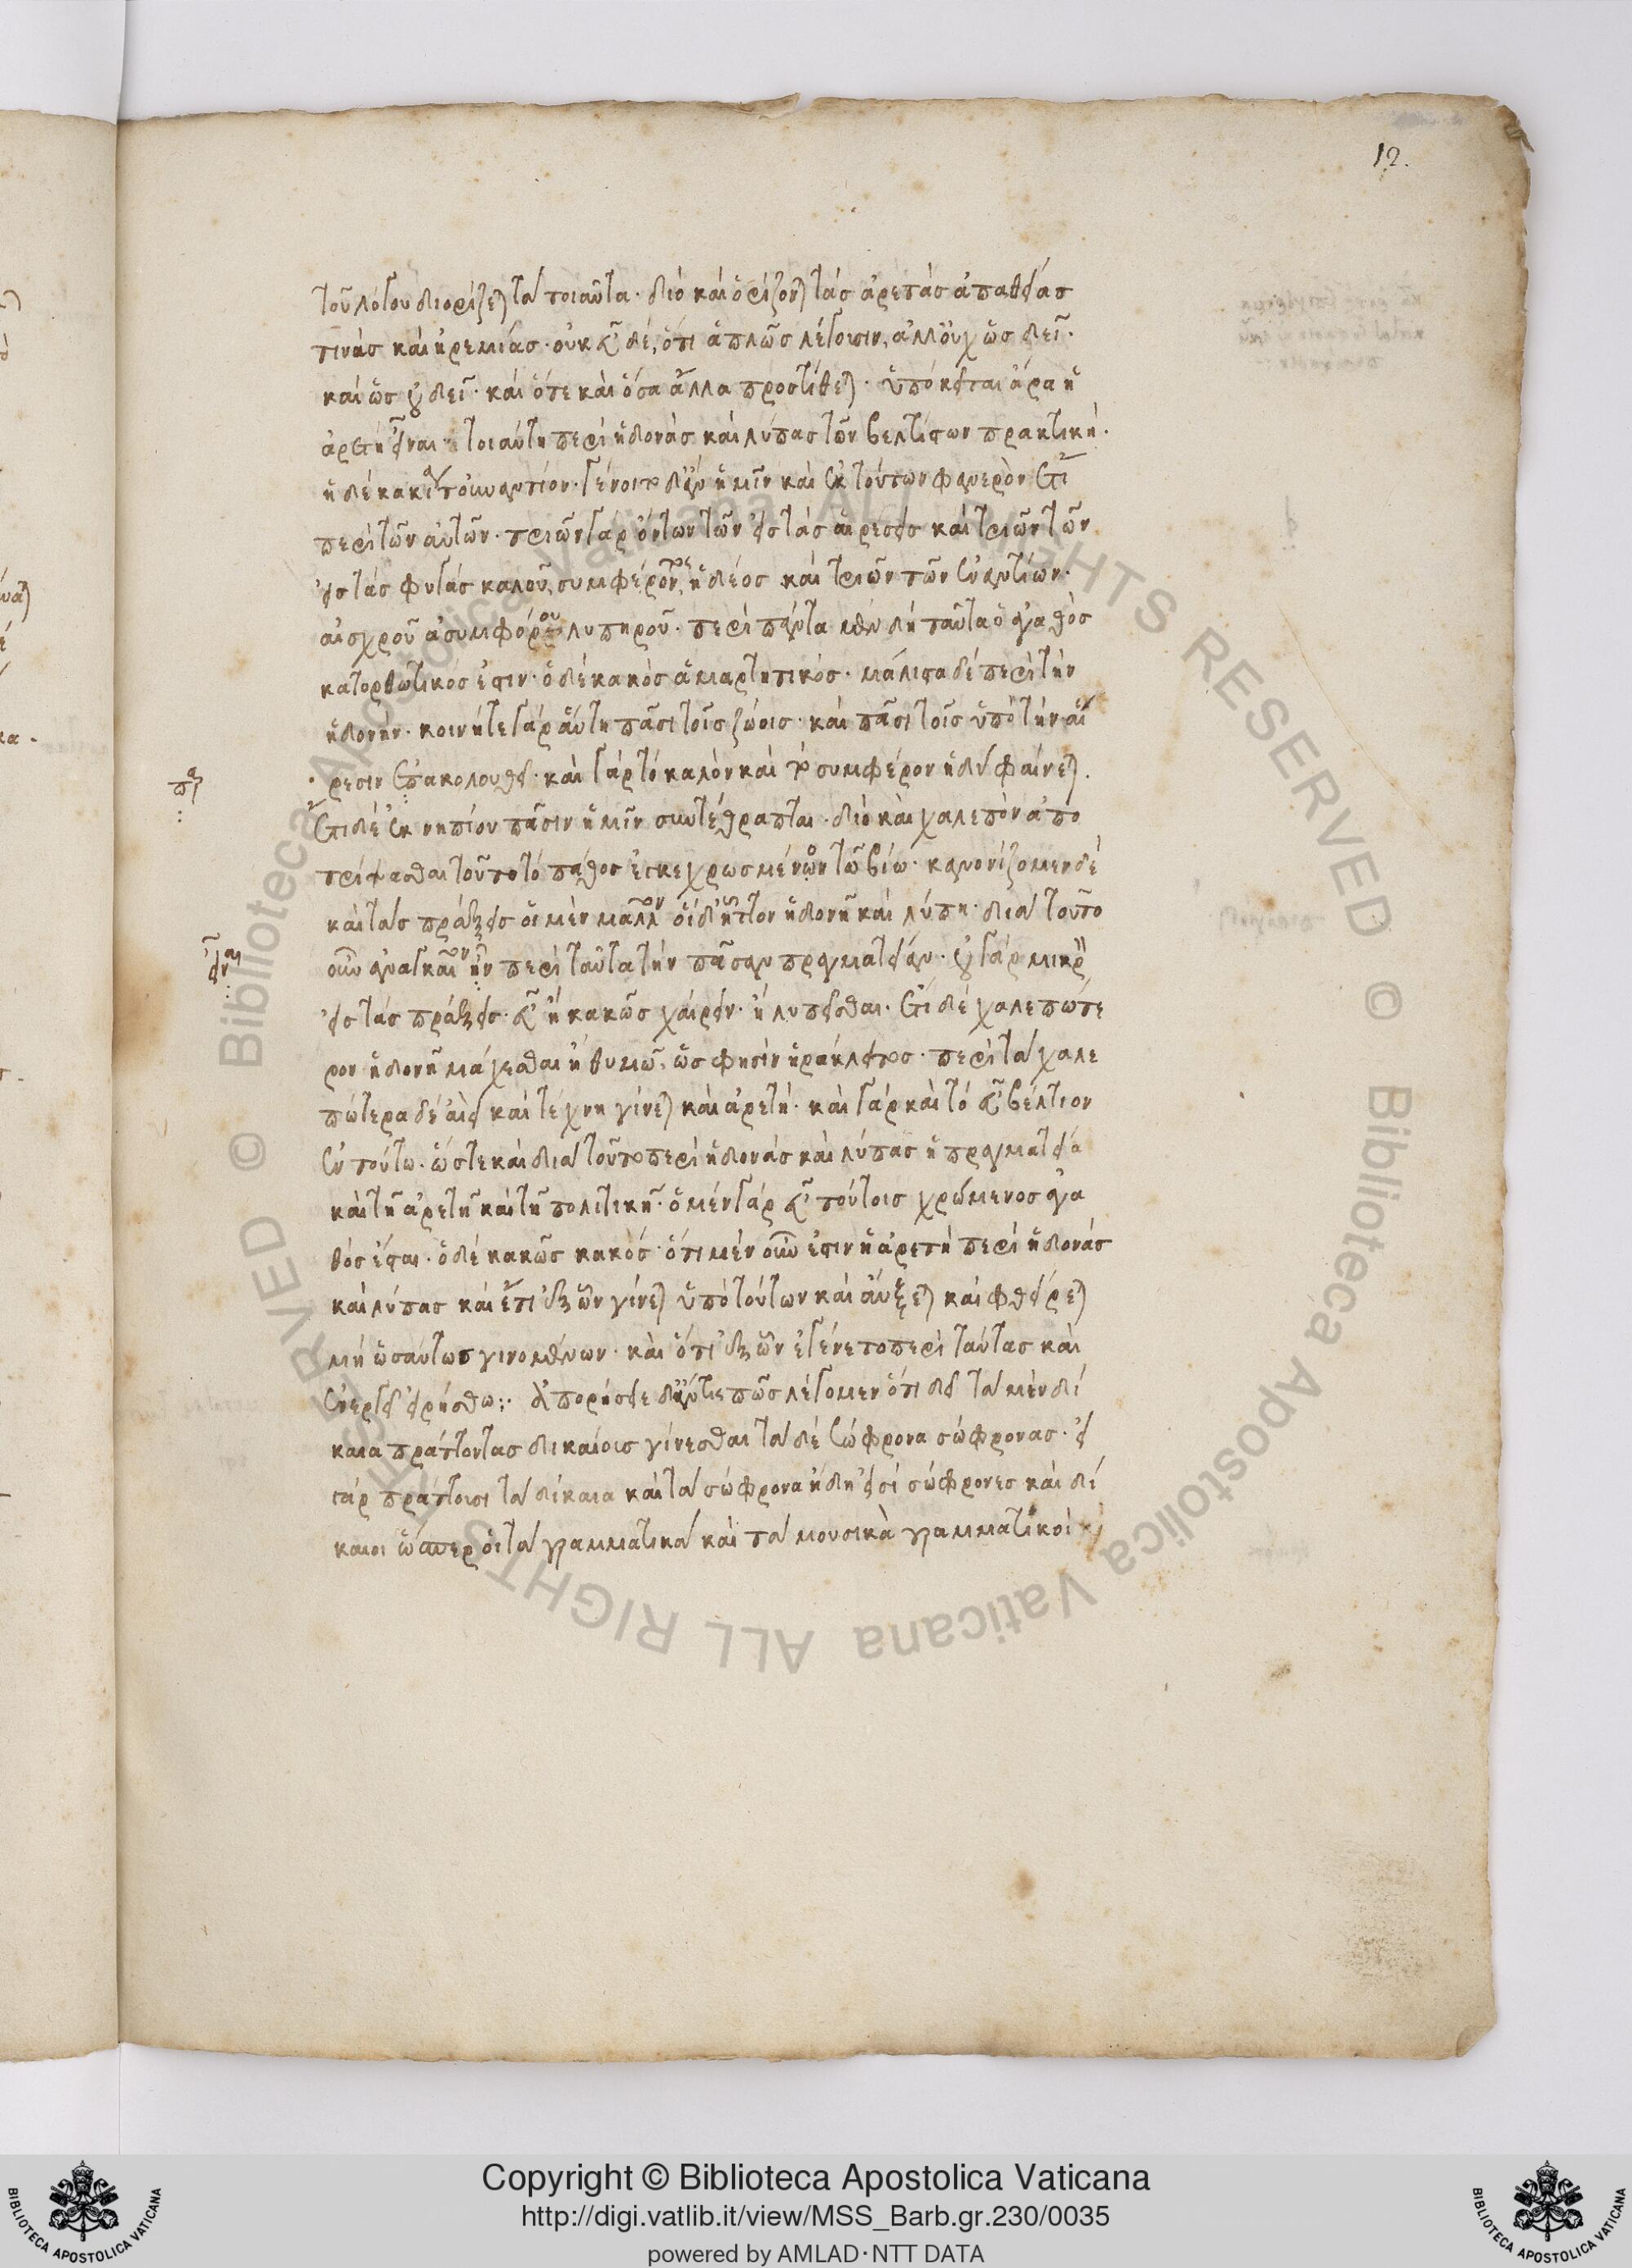 12.
τοῦ λόγου διορίζεται τὰ τοιαῦτα· διὸ καὶ ὁρίζονται τὰς ἀρετὰς ἀπαθείας
τινὰς καὶ ἠρεμίας· οὐκ εὖ δέ, ὅτι ἁπλῶς λέγουσιν, ἀλλ' οὐχ ὡς δεῖ·
καὶ ὡς οὐ δεῖ· καὶ ὅτε καὶ ὅσα ἄλλα προστίθεται· ὑπόκειται ἄρα ἡ
ἀρετὴ εἶναι ἡ τοιαύτη περὶ ἡδονὰς καὶ λύπας τῶν βελτίστων πρακτική·
ἡ δὲ κακία τοὐναντίον· γένοιτο δ' ἂν ἡμῖν καὶ ἐκ τούτων φανερὸν ἔτι
περὶ τῶν αὐτῶν· τριῶν γὰρ ὄντων τῶν εἰς τὰς αἱρέσεις καὶ τριῶν τῶν
εἰς τὰς φυγάς καλοῦ, συμφέροντος, ἡδέος καὶ τριῶν τῶν ἐναντίων·
αἰσχροῦ ἀσυμφόρου λυπηροῦ· περὶ πάντα μὲν δὴ ταῦτα ὁ ἀγαθὸς
κατορθωτικός ἐστιν· ὁ δὲ κακὸς ἁμαρτητικός· μάλιστα δὲ περὶ τὴν
ἡδονήν· κοινή τε γὰρ αὕτη πᾶσι τοῖς ζώοις· καὶ πᾶσι τοῖς ὑπὸ τὴν αἵ
πα
ρεσιν ἐπακολουθεῖ· καὶ γὰρ τὸ καλὸν καὶ τὸ συμφέρον ἡδὺ φαίνεται.
ἔτι δὲ ἐκ νηπίου πᾶσιν ἡμῖν συντέθραπται· διὸ καὶ χαλεπὸν ἀπο
τρίψασθαι τοῦτο τὸ πάθος ἐγκεχρωσμένον τῶ βίω· κανονίζομεν δὲ
καὶ τὰς πράξεις οἱ μὲν μᾶλλον οἱ δ' ἧττον ἡδονῆ καὶ λύπη· διὰ τοῦτο
εἶναι
οὖν ἀναγκαῖον ἦν περὶ ταῦτα τὴν πᾶσαν πραγματείαν· οὐ γὰρ μικρὸν
εἰς τὰς πράξεις· εὖ ἢ κακῶς χαίρειν· ἢ λυπεῖσθαι. ἔτι δὲ χαλεπώτε
ρον ἡδονῆ μάχεσθαι ἢ θυμῶ, ὥς φησιν ἡράκλειτος· περὶ τὰ χαλε
πώτερα δὲ ἀεὶ καὶ τέχνη γίνεται καὶ ἀρετή· καὶ γὰρ καὶ τὸ εὖ βέλτιον
ἐν τούτω· ὥστε καὶ διὰ τοῦτο περὶ ἡδονὰς καὶ λύπας ἡ πραγματεία
καὶ τῆ ἀρετῆ καὶ τῆ πολιτικῆ· ὁ μὲν γὰρ εὖ τούτοις χρώμενος ἀγα
θὸς ἔσται· ὁ δὲ κακῶς κακός· ὅτι μὲν οὖν ἐστιν ἡ ἀρετὴ περὶ ἡδονὰς
καὶ λύπας καὶ ἔτι ἐξ ὧν γίνεται ὑπὸ τούτων καὶ αὔξεται καὶ φθείρεται
μὴ ὡσαύτως γινομένων· καὶ ὅτι ἐξ ὧν ἐγένετο περὶ ταύτας καὶ
ἐνεργεῖ εἰρήσθω:· Ἀπορήσειε δ' ἄν τις πῶς λέγομεν ὅτι δεῖ τὰ μὲν δί
καια πράττοντας δικαίοις γίνεσθαι τὰ δὲ σώφρονα σώφρονας· εἰ
γὰρ πράττουσι τὰ δίκαια καὶ τὰ σώφρονα ἤδη εἰσὶ σώφρονες καὶ δί
καιοι ὥσπερ οἱ τὰ γραμματικὰ καὶ τὰ μουσικὰ γραμματικοὶ καὶ
Copyright © Biblioteca Apostolica Vaticana
http://digi.vatlib.it/view/MSS_Barb.gr.230/0035
powered by AMLAD·NTT DATA